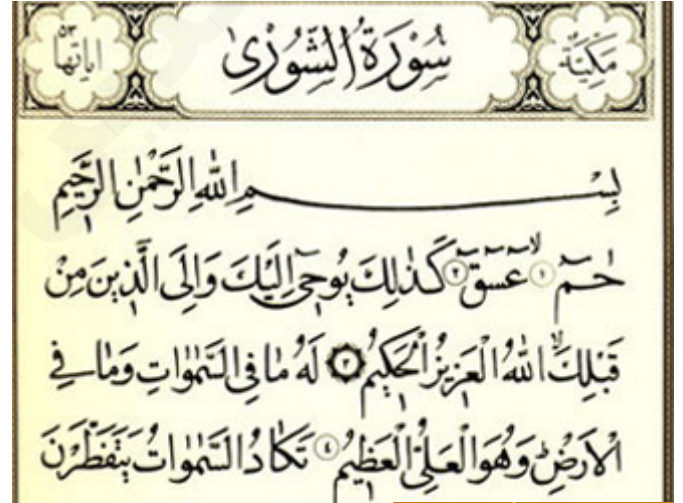 مكية سورة الشورى اياتها ٥٣
بِسْمِ اللهِ الرَّحْمٰنِ الرَّحِيمِ
حٰمٓ ١ عٓسٓقٓ ٢ كَذٰلِكَ يُوحٖٓى اِلَيْكَ وَاِلَى الَّذٖينَ مِنْ
قَبْلِكَۙ اللهُ الْعَزٖيزُ الْحَكٖيمُ ٣ لَهُ مَا فِى السَّمٰوَاتِ وَمَا فِى
الْاَرْضِؕ وَهُوَ الْعَلِىُّ الْعَظٖيمُ ٤ تَكَادُ السَّمٰوَاتُ يَتَفَطَّرْنَ